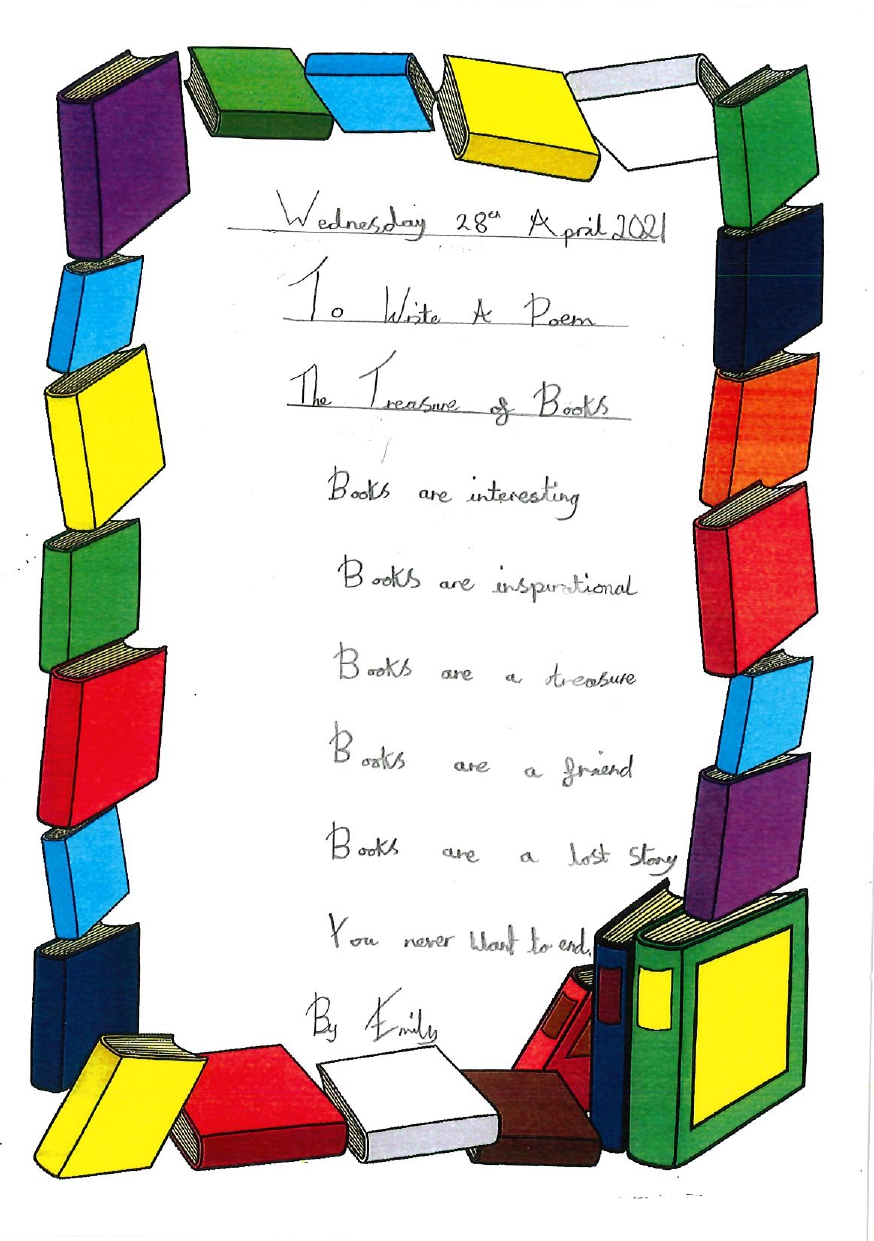 Wednesday 28th April 2021
To Write A Poem
The Treasure of Books
Books are interesting
Books are inspirational
Books are a treasure
Books are a friend
Books are a lost story
You never want to end.
By Emily